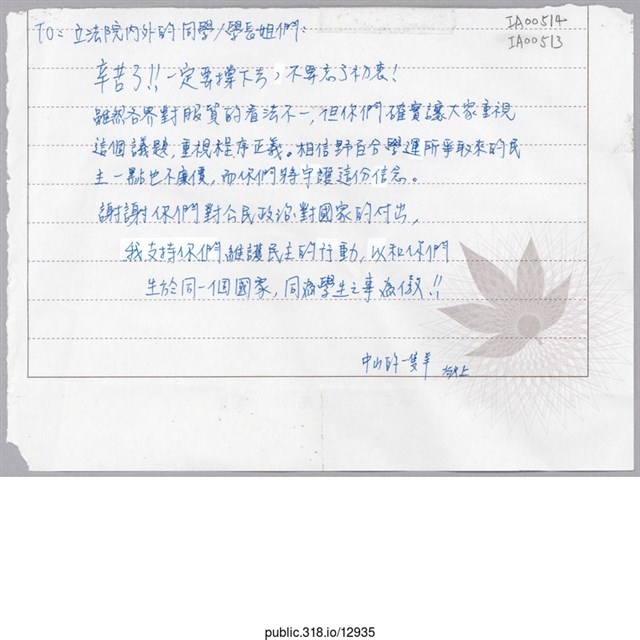 IA00514
IA00513
TO: 立法院內外的同學/學長姐們:
辛苦了!! 一定要撐下去, 不要忘了初衷!
雖然各界對服貿的看法不一, 但你們確實讓大家重視
這個議題, 重視程序正義。相信野百合學運所爭取來的民
主一點也不廉價, 而你們將守護這份信念。
謝謝你們對公民政治、對國家的付出,
我支持你們維護民主的行動, 以和你們
生於同一個國家, 同為學生之事為傲!!
中山的一隻羊 敬上
public.318.io/12935